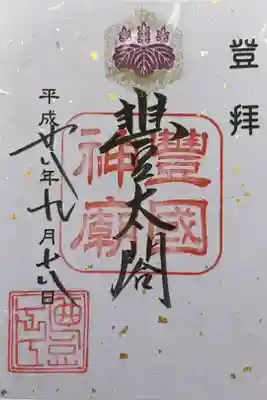 登拝
豊太閤
豊國神廟
平成廿八年九月十八日